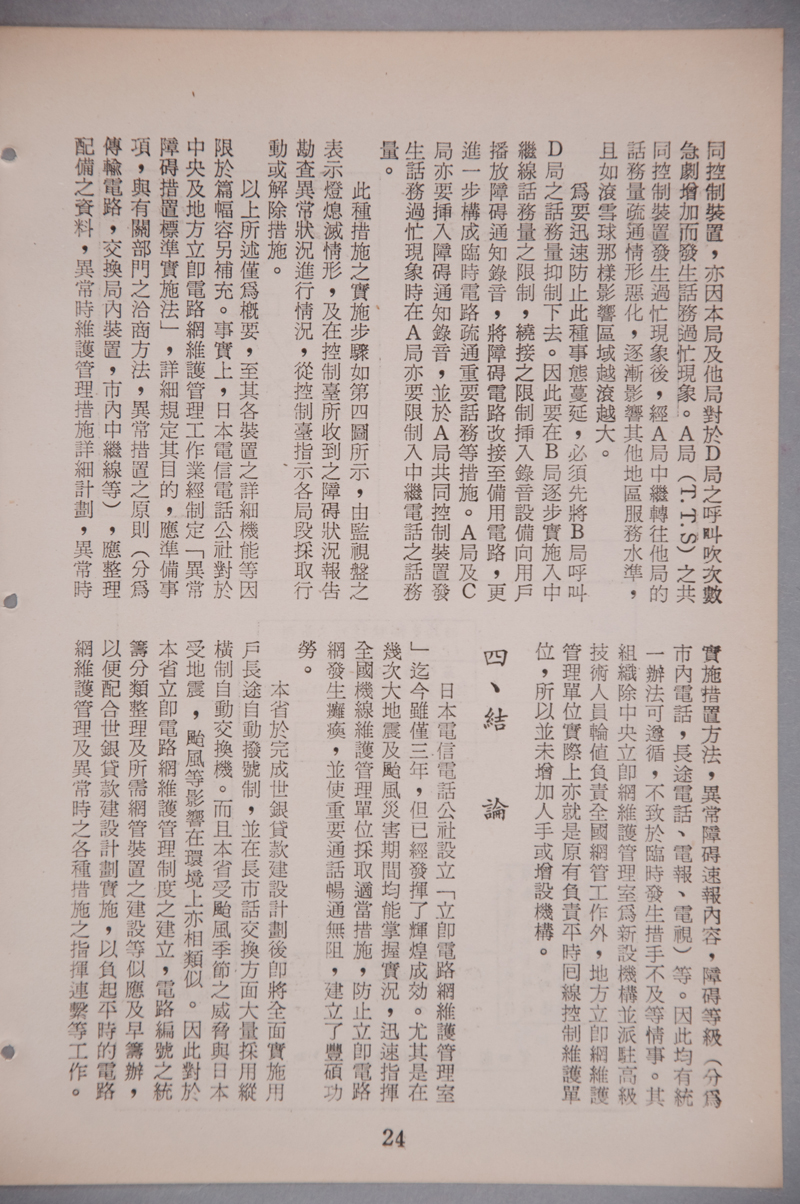 同控制裝置，亦因本局及他局對於D局之呼叫次數
急劇增加而發生話務過忙現象。A局（T.T.S）之共
同控制裝置發生過忙現象後，經A局中繼轉往他局的
話務量疏通情形惡化，逐漸影響其他地區服務水準，
且如滾雪球那樣影響區域越滾越大。
為要迅速防止此種事態蔓延，必須先將B局呼叫
D局之話務量抑制下去。因此要在B局逐步實施入中
繼線話務量之限制，繞接之限制挿入錄音設備向用戶
播放障碍通知錄音，將障碍電路改接至備用電路，更
進一步構成臨時電路疏通重要話務等措施。A局及C
局亦要挿入障碍通知錄音，並於A局共同控制裝置發
生話務過忙現象時在A局亦要限制入中繼電話之話務
量。
此種措施之實施步驟如第四圖所示，由監視盤之
表示燈熄滅情形，及在控制臺所收到之障碍狀況報告
勘查異常狀況進行情況，從控制臺指示各局段採取行
動或解除措施。
以上所述僅為概要，至其各裝置之詳細機能等因
限於篇幅容另補充。事實上，日本電信電話公社對於
中央及地方立即電路網維護管理工作業經制定「異常
障碍措置標準實施法」，詳細規定其目的，應準備事
項，與有關部門之洽商方法，異常措置之原則（分為
傳輸電路，交換局內裝置，市內中繼線等），應整理
配備之資料，異常時維護管理措施詳細計劃，異常時
實施措置方法，異常障碍速報內容，障碍等級（分為
市內電話，長途電話、電報、電視）等。因此均有統
一辦法可遵循，不致於臨時發生措手不及等情事。其
組織除中央立即網維護管理室為新設機構並派駐高級
技術人員輪值負責全國網管工作外，地方立即網維護
管理單位實際上亦就是原有負責平時回線控制維護單
位，所以並未增加人手或增設機構。
四、結　論
日本電信電話公社設立「立即電路網維護管理室
」迄今雖僅三年，但已經發揮了輝煌成効。尤其是在
幾次大地震及颱風災害期間均能掌握實況，迅速指揮
全國機線維護管理單位採取適當措施，防止立即電路
網發生癱瘓，並使重要通話暢通無阻，建立了豐碩功
勞。
本省於完成世銀貸款建設計劃後即將全面實施用
戶長途自動撥號制，並在長市話交換方面大量採用縱
橫制自動交換機。而且本省受颱風季節之威脅與日本
受地震，颱風等影響在環境上亦相類似。因此對於
本省立即電路網維護管理制度之建立，電路編號之統
籌分類整理及所需網管裝置之建設等似應及早籌辦，
以便配合世銀貸款建設計劃實施，以負起平時的電路
網維護管理及異常時之各種措施之指揮連繫等工作。
24